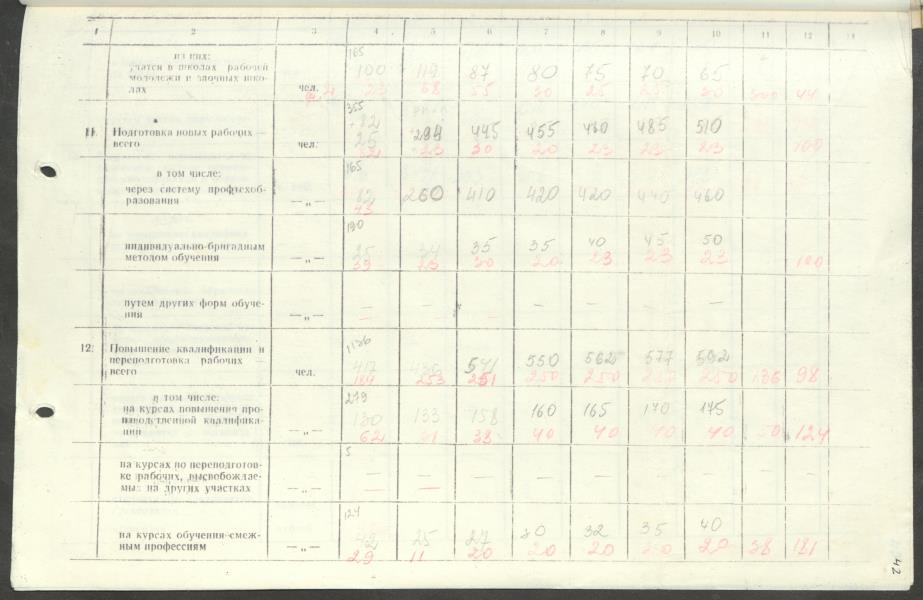 1 2 3 4 5 6 7 8 9 10 11 12
из них:
учатся в школах рабочей
молодежи и заочных шко-
лах
чел.
165
100 119 87 80 75 70 65
68 55
44
11. Подготовка новых рабочих —
всего
чел.
355
82
25
294 445 455 485 510
30 20 23 23 23
100
в том числе:
через систему профтехоб-
разования
— „ —
165
82
43
260 410 420 420 440 460
индивидуально-бригадным
методом обучения
— „ —
190
25 34 35 35 40 45 50
39 23 30 20 23 23 23 100
путем других форм обуче-
ния
— „ —
— — — — — —
12. Повышение квалификации и
переподготовка рабочих —
всего
чел.
417 541 550 562 577 592
184 253 251 250 250 250 136 98
в том числе:
на курсах повышения про-
изводственной квалифика-
ции
— „ —
279
130 133 158 160 165 170 175
62 31 38 40 40 40 40 50 124
на курсах по переподготов-
ке рабочих, высвобождае-
мых на других участках
— „ —
5
— — — — — — —
— —
на курсах обучения смеж-
ным профессиям
— „ —
124
42 25 27 30 32 35 40
29 11 20 20 20 20 20 38 181
42